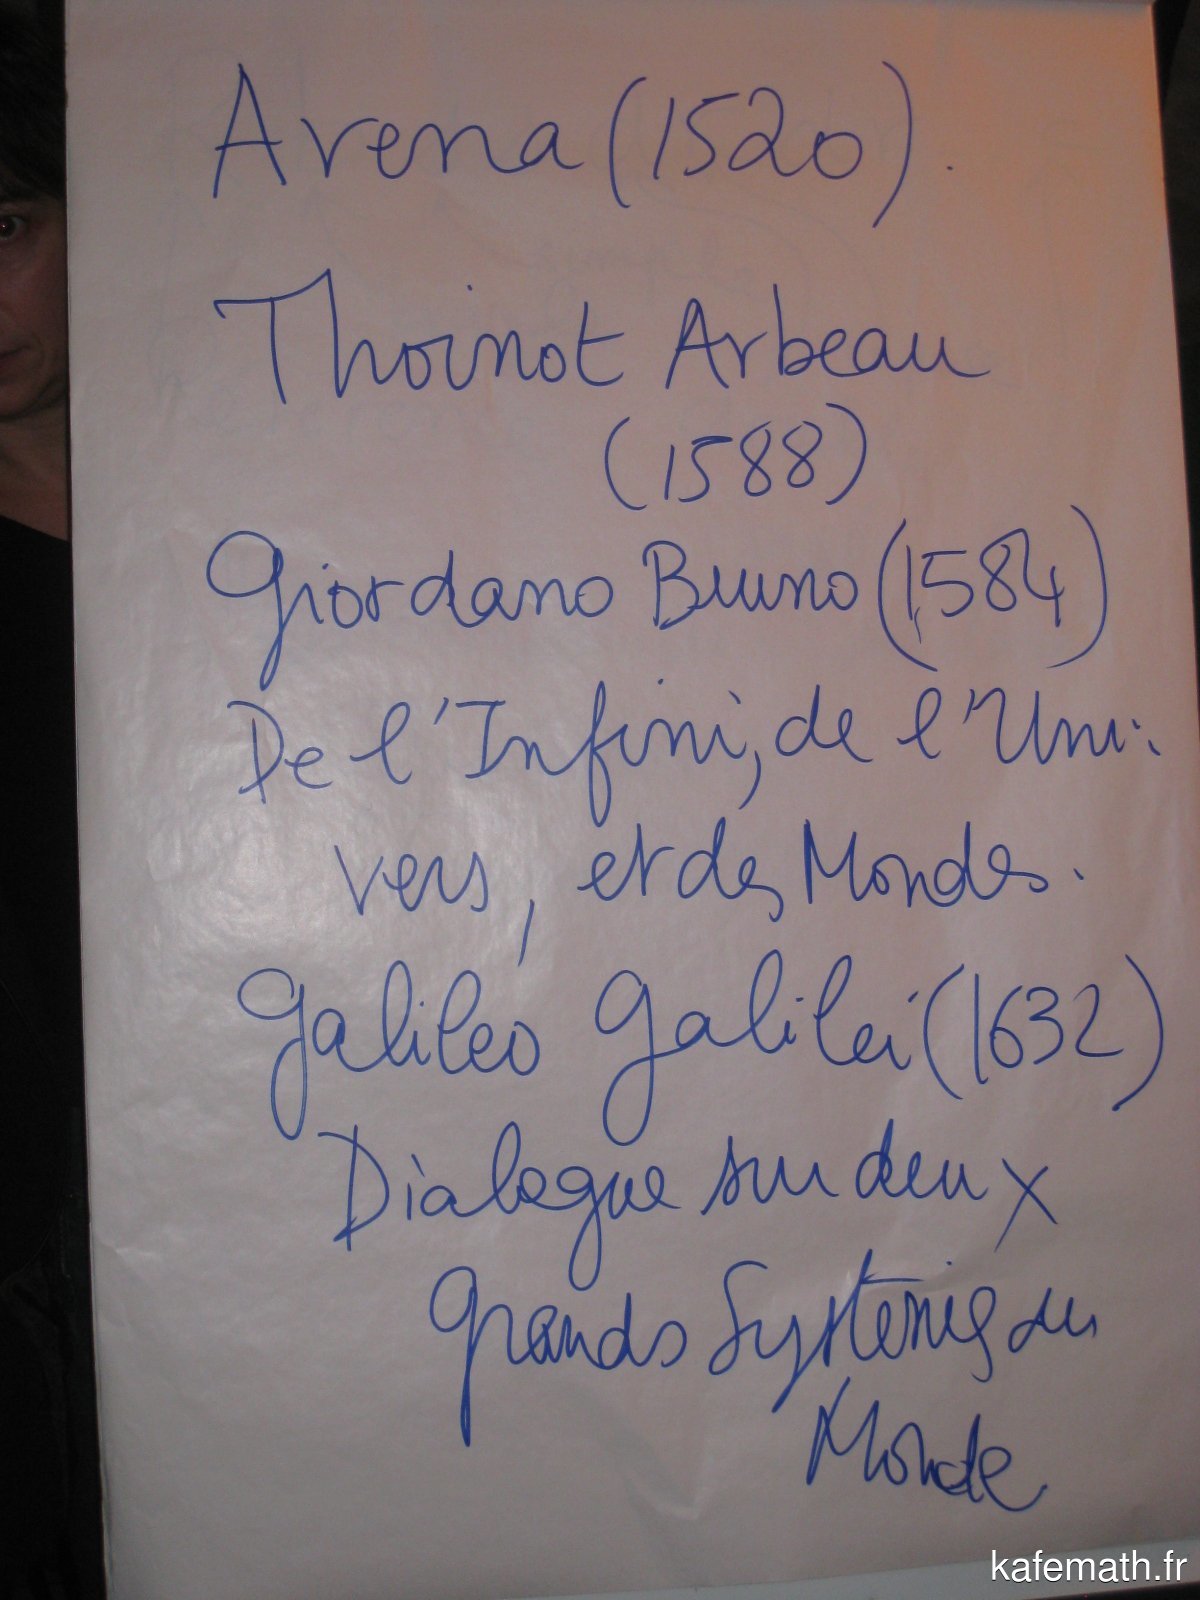 Arena (1520).
Thoinot Arbeau
(1588)
Giordano Bruno (1584)
De l'Infini, de l'Uni-
vers, et des Mondes.
Galileo Galilei (1632)
Dialogue sur deux
grands Systèmes du
Monde
kafemath.fr